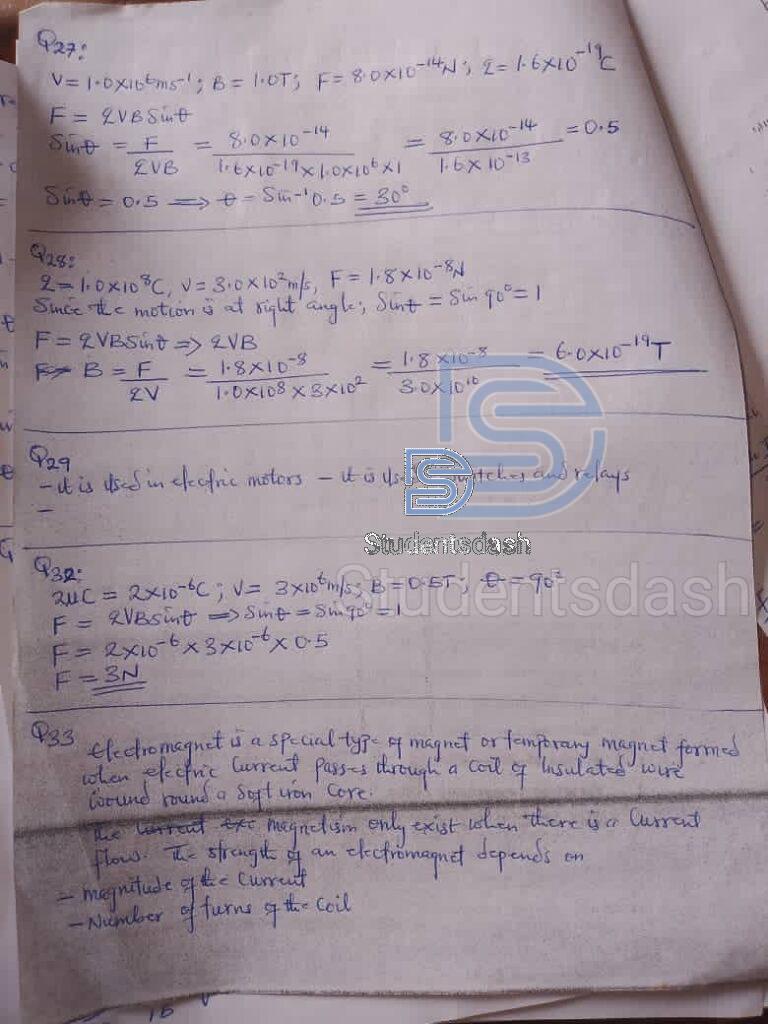 Q27:
V = 1.0×10⁶ms⁻¹; B = 1.0T; F = 8.0×10⁻¹⁴N; q = 1.6×10⁻¹⁹C
F = qVBSinθ
Sinθ = F/qVB = 8.0×10⁻¹⁴/1.6×10⁻¹⁹×1.0×10⁶×1 = 8.0×10⁻¹⁴/1.6×10⁻¹³ = 0.5
Sinθ = 0.5 ⟹ θ = Sin⁻¹0.5 = 30°
Q28:
q = 1.0×10⁸C, V = 3.0×10²m/s, F = 1.8×10⁻⁸N
Since the motion is at right angle; Sinθ = Sin 90° = 1
F = qVBSinθ ⟹ qVB
B = F/qV = 1.8×10⁻⁸/1.0×10⁸×3×10² = 1.8×10⁻⁸/3.0×10¹⁰ = 6.0×10⁻¹⁹T
Q29
- it is used in electric motors - it is used switches and relays
-
Studentsdash
Q32:
2μC = 2×10⁻⁶C; V = 3×10⁶m/s; B = 0.5T; θ = 90°
Studentsdash
F = qVBsinθ ⟹ Sinθ = Sin 90° = 1
F = 2×10⁻⁶×3×10⁻⁶×0.5
F = 3N
Q33
Electromagnet is a special type of magnet or temporary magnet formed
when electric Current passes through a coil of Insulated wire
wound round a Soft iron Core.
The current exc magnetism only exist when there is a Current
flow. The strength of an electromagnet depends on
- magnitude of the Current
- Number of turns of the coil